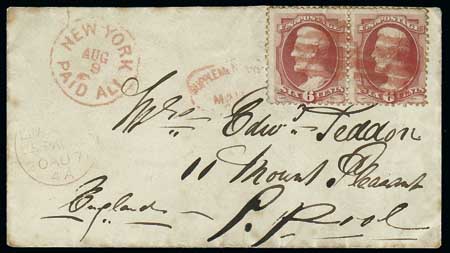 NEW YORK
AUG
9
PAID ALL
SUPPLEM
MAIL
U.S. POSTAGE
SIX 6 CENTS
U.S. POSTAGE
SIX 6 CENTS
20 AU 7
4A
Mrs Edwd Seddon
11 Mount Pleasant
England L. Pool